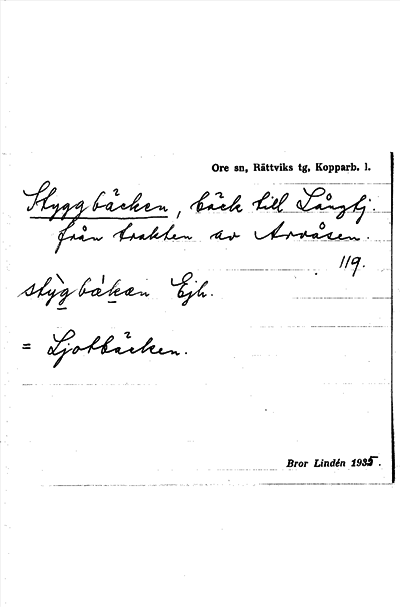 Ore sn, Rättviks tg, Kopparb. l.
Styggbäcken, bäck till Långtj.
från trakten av Arvåsen.
119.
stỳg bàkæn Ejh.
= Ljotbäcken.
Bror Lindén 1935.